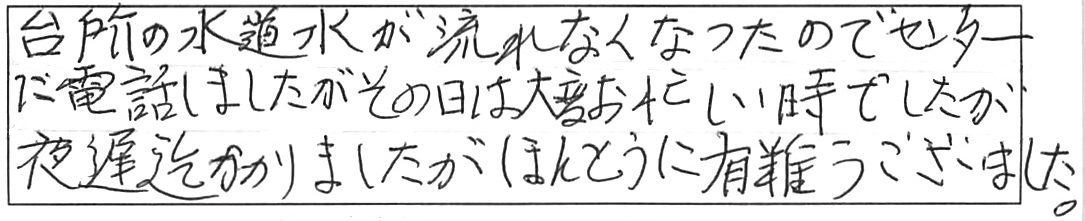 台所の水道水が流れなくなったのでセンター
に電話しましたがその日は大変お忙しい時でしたが
夜遅迄かかりましたがほんとうに有難うございました。